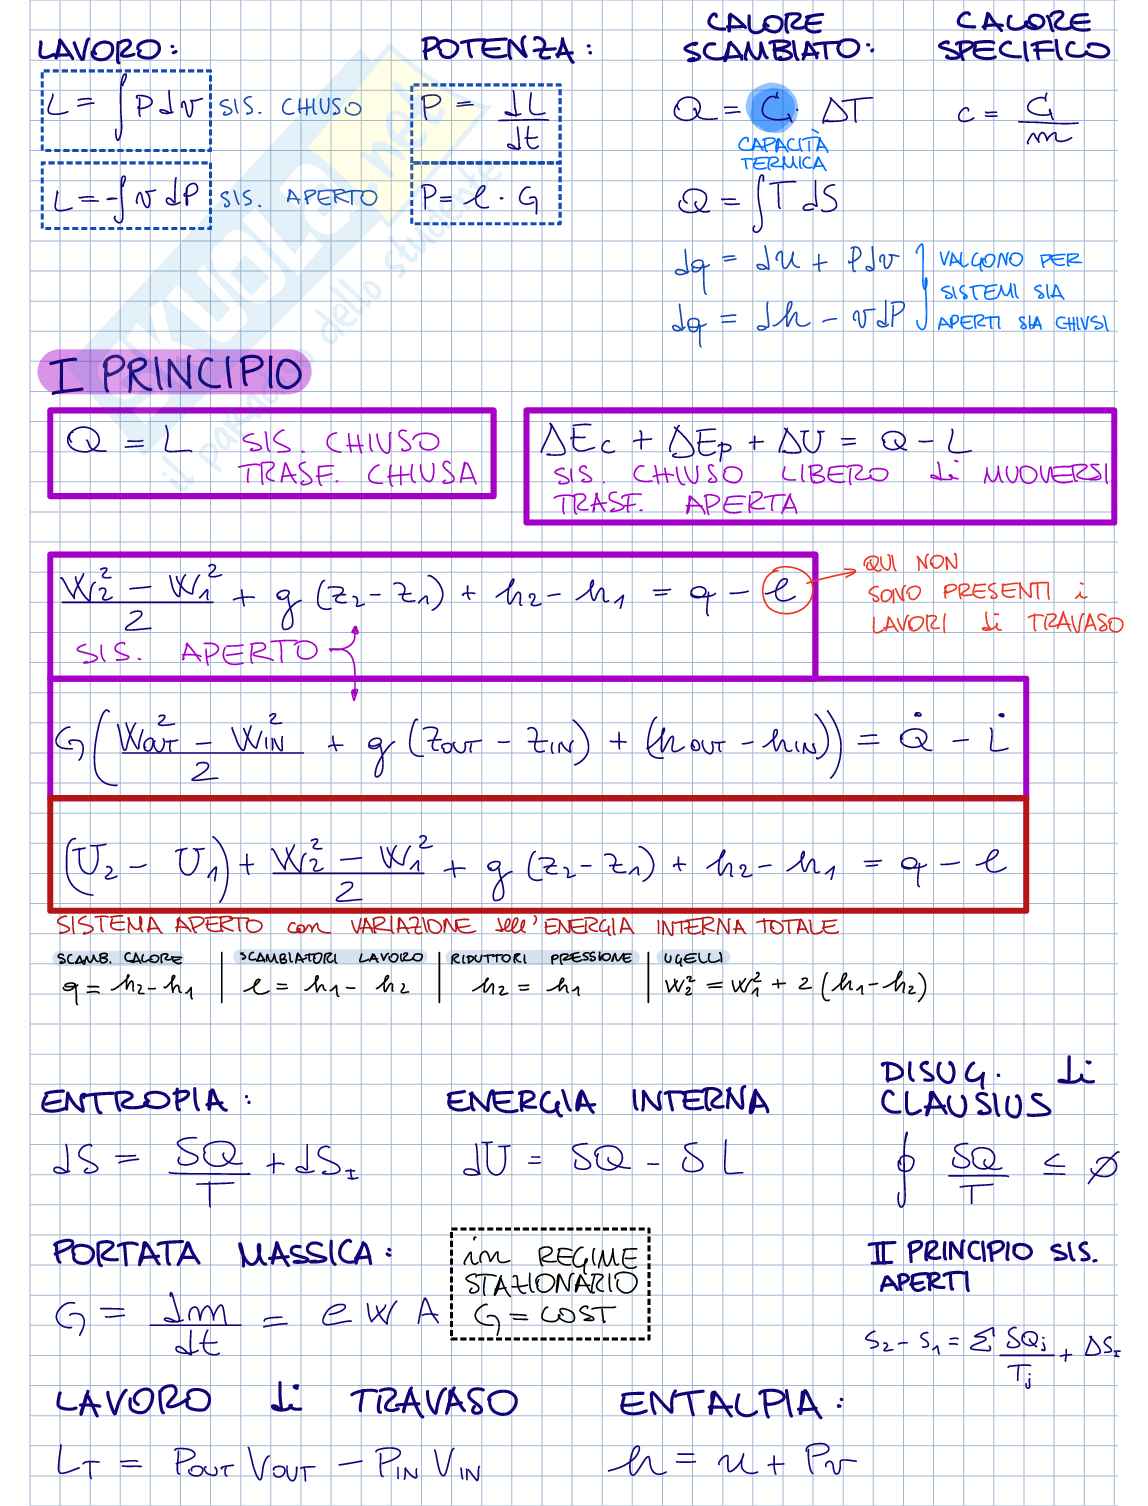 LAVORO:
L = ∫ P dv SIS. CHIUSO
L = -∫ v dP SIS. APERTO
POTENZA:
P = dL/dt
P = l · G
CALORE SCAMBIATO:
Q = C · ΔT
CAPACITÀ TERMICA
Q = ∫ T dS
dq = du + Pdv
dq = dh - vdP
VALGONO PER
SISTEMI SIA
APERTI SIA CHIUSI
CALORE SPECIFICO
c = C/m
I PRINCIPIO
Q = L SIS. CHIUSO
TRASF. CHIUSA
ΔEc + ΔEp + ΔU = Q - L
SIS. CHIUSO LIBERO di MUOVERSI
TRASF. APERTA
(W₂² - W₁²)/2 + g (z₂ - z₁) + h₂ - h₁ = q - l
QUI NON
SONO PRESENTI i
LAVORI di TRAVASO
SIS. APERTO
G((W²OUT - W²IN)/2 + g (ZOUT - ZIN) + (hOUT - hIN)) = Q̇ - L̇
(U₂ - U₁) + (W₂² - W₁²)/2 + g (z₂ - z₁) + h₂ - h₁ = q - l
SISTEMA APERTO con VARIAZIONE dell'ENERGIA INTERNA TOTALE
SCAMB. CALORE
q = h₂ - h₁
SCAMBIATORI LAVORO
l = h₁ - h₂
RIDUTTORI PRESSIONE
h₂ = h₁
UGELLI
W₂² = W₁² + 2 (h₁ - h₂)
ENTROPIA:
dS = δQ/T + dS_I
ENERGIA INTERNA
dU = δQ - δL
DISUG. di
CLAUSIUS
∮ δQ/T ≤ Ø
PORTATA MASSICA:
G = dm/dt = ρ W A
in REGIME
STAZIONARIO
G = COST
II PRINCIPIO SIS.
APERTI
S₂ - S₁ = Σ δQj/Tj + ΔS_I
LAVORO di TRAVASO
L_T = POUT VOUT - PIN VIN
ENTALPIA:
h = u + Pv
SKUOLA.net
il paradiso dello studente